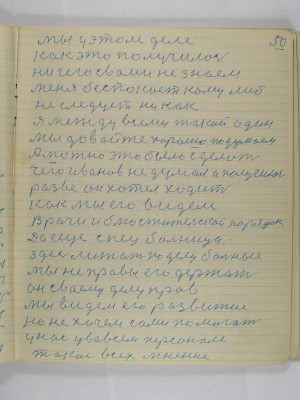 50
мы у этом деле
как это получилос
ничего с вами не знаем
меня беспокоит кому либ
не следует никак
Я между всеми такой один
мы довайте хорошо подумаем
А можно это было сделат
чего иванов не думал а получилос
разве он хотел ходит
как мы его видем
врачи и блюстителской порядок
Да еще спец болница
здес лижат по делу болные
мы не правы его держат
он своему делу прав
мы видем его развитие
но не хочем сами помогат
у нас у вавсем персонале
такое всех мнение